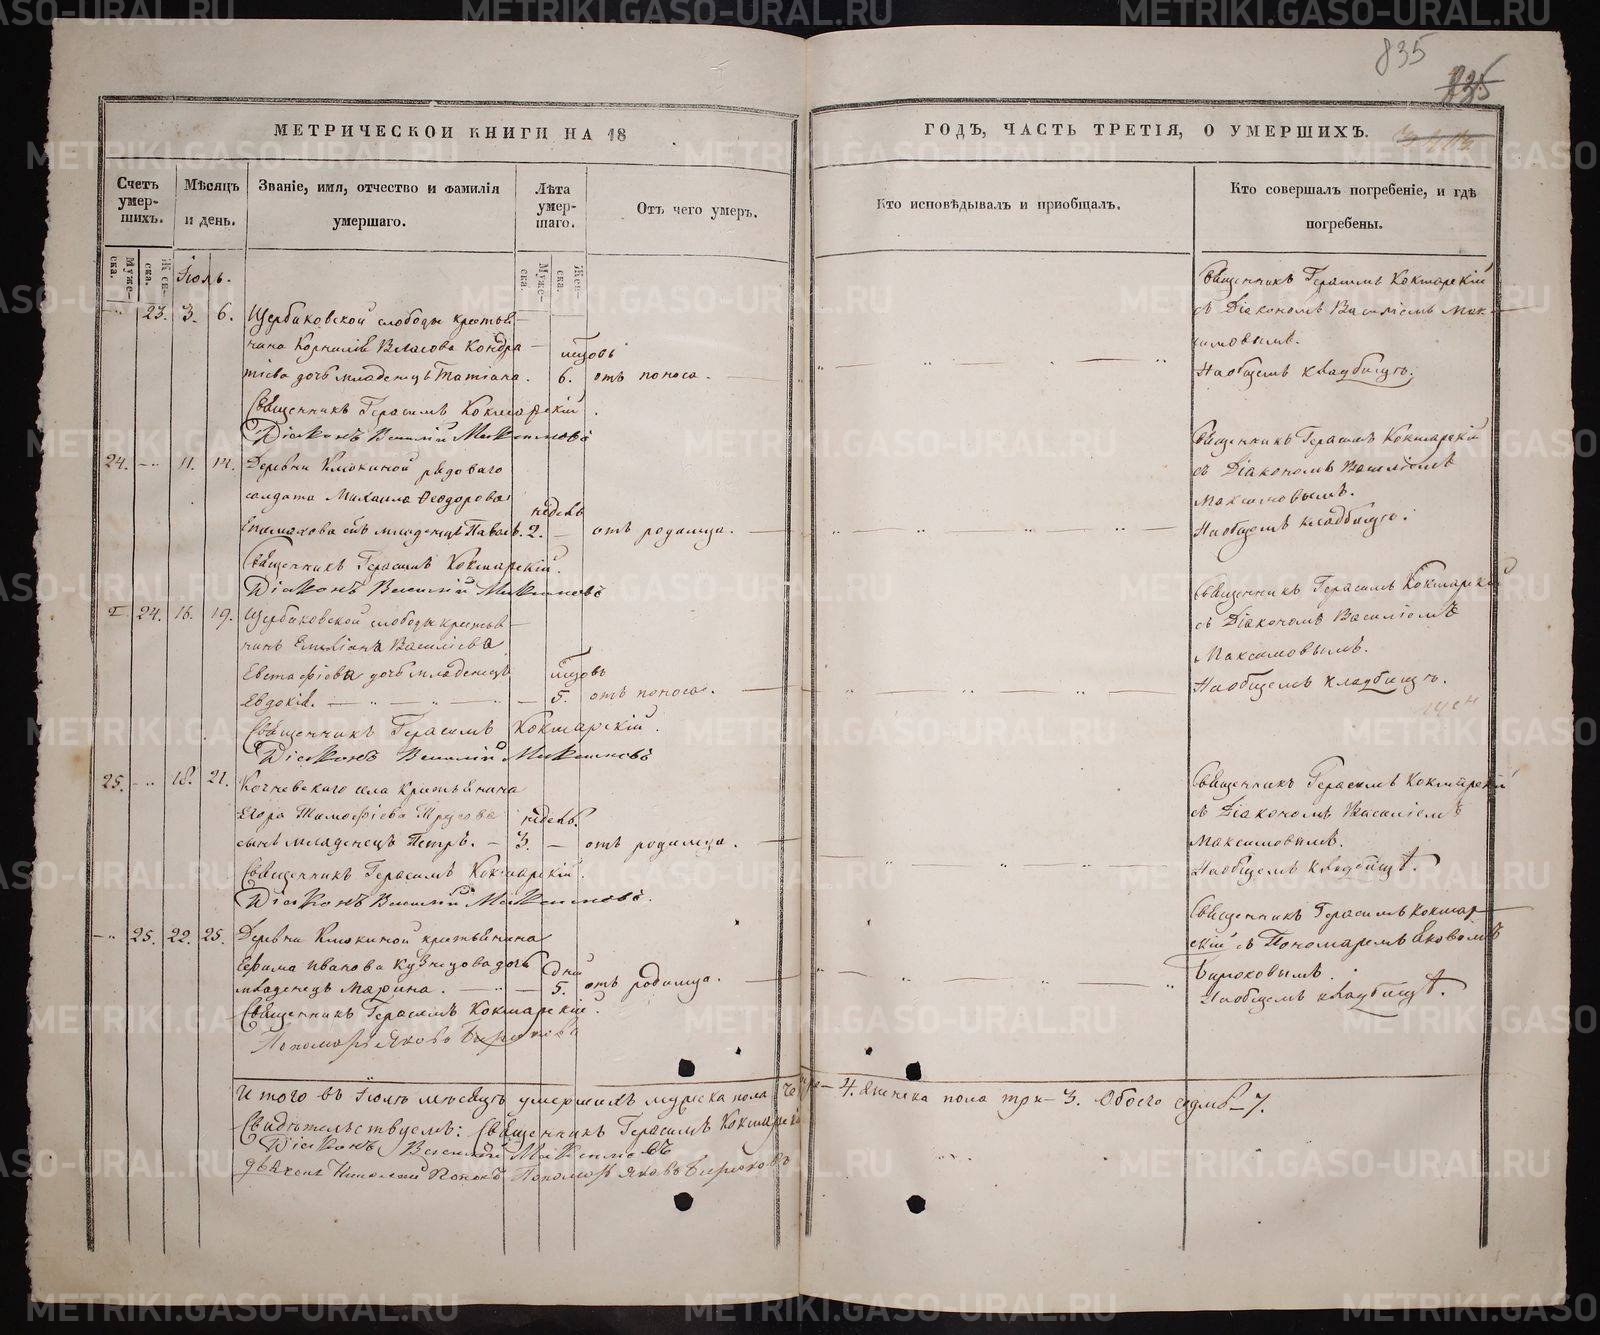 835
835
МЕТРИЧЕСКОЙ КНИГИ НА 18
ГОДЪ, ЧАСТЬ ТРЕТІЯ, О УМЕРШИХЪ.
Счетъ умер-шихъ.
Мѣсяцъ и день.
Званіе, имя, отчество и фамилія умершаго.
Лѣта умер-шаго.
Отъ чего умеръ.
Кто исповѣдывалъ и пріобщалъ.
Кто совершалъ погребеніе, и гдѣ погребены.
Муже-ска.
Же-ска.
Муже-ска.
Жен-ска.
Іюль.
23. 3. 6. Щербаковской слободы крестья-
нина Корнилія Власова Кондра-
тіева дочь младенецъ Татіана. 6. отъ поноса.
Священникъ Герасимъ Кокшарскій
съ Діакономъ Василіемъ Мак-
симовымъ.
На общемъ кладбищѣ.
Священникъ Герасимъ Кокшарскій.
Діаконъ Василій Максимовъ
24. 11. 14. Деревни Клюкиной рядоваго
солдата Михаила Ѳеодорова
сынъ младенецъ Павелъ. недѣль 2. отъ родимца.
Священникъ Герасимъ Кокшарскій
съ Діакономъ Василіемъ
Максимовымъ.
На общемъ кладбищѣ.
Священникъ Герасимъ Кокшарскій.
Діаконъ Василій Максимовъ
24. 16. 19. Щербаковской слободы крестья-
нина Емиліана Василіева
Евстафіева дочь младенецъ
Евдокія. 5. отъ поноса.
Священникъ Герасимъ Кокшарскій
съ Діакономъ Василіемъ
Максимовымъ.
На общемъ кладбищѣ.
Священникъ Герасимъ Кокшарскій.
Діаконъ Василій Максимовъ
25. 18. 21. Кочневскаго села крестьянина
Егора Тимофіева Трусова недѣль
сынъ младенецъ Петръ. 3. отъ родимца.
Священникъ Герасимъ Кокшарскій
съ Діакономъ Василіемъ
Максимовымъ.
На общемъ кладбищѣ.
Священникъ Герасимъ Кокшарскій.
Діаконъ Василій Максимовъ.
25. 22. 25. Деревни Клюкиной крестьянина
Ефима Иванова Кузнецова дочь дній
младенецъ Марина. 5. отъ родимца.
Священникъ Герасимъ Кокшар-
скій съ Пономаремъ Яковомъ
Бирюковымъ.
На общемъ кладбищѣ.
Священникъ Герасимъ Кокшарскій.
Пономарь Яковъ Бирюковъ
Итого въ Іюлѣ мѣсяцѣ умершихъ мужеска пола четыре – 4. женска пола три – 3. Обоего седмь – 7.
Свидѣтельствуемъ: Священникъ Герасимъ Кокшарскій
Діаконъ Василій Максимовъ
Дьячекъ Николай Пономарь Яковъ Бирюковъ
METRIKI.GASO-URAL.RU